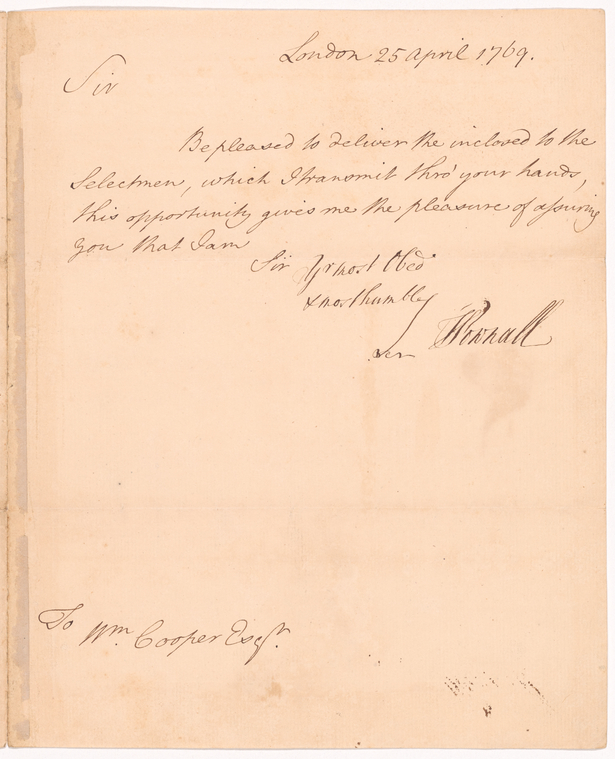 London 25 April 1769.
Sir
Be pleased to deliver the inclosed to the
Selectmen, which I transmit thro' your hands,
this opportunity gives me the pleasure of assuring
you that I am
Sir Yr most Obed
& most humble
Ser
T Pownall
To Wm. Cooper Esqr.